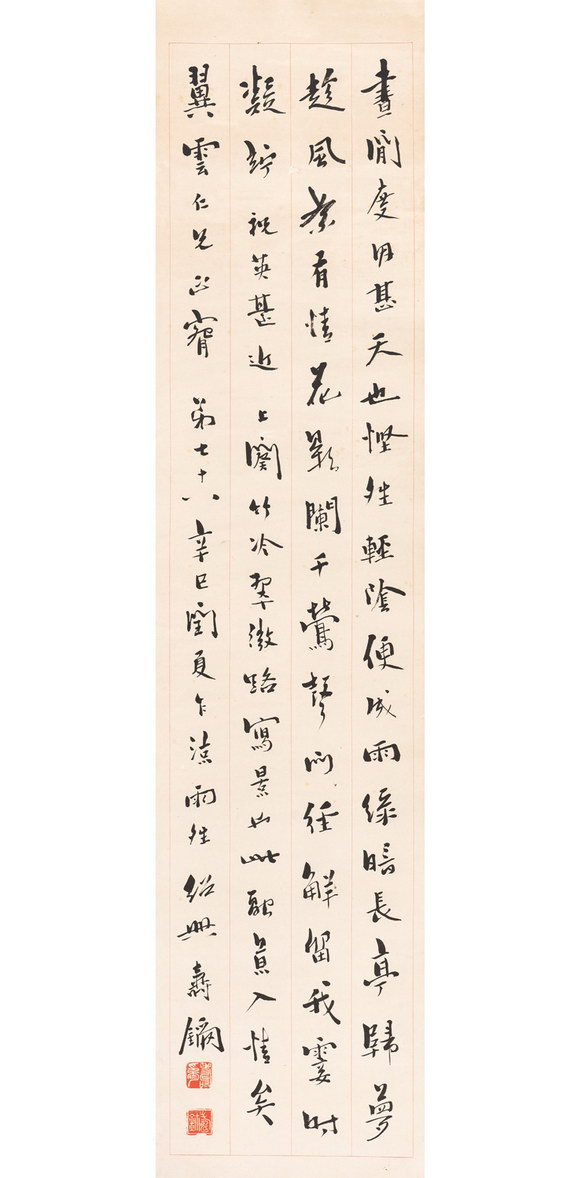 晝閒度因甚天也慳夝輕陰便成雨綠暗長亭歸夢
趁風絮有情花影闌干鶯聲門徑解留我霎時
凝竚 祝英臺近 上闋竹冷翠微路寫景如此融入情矣
翼雲仁兄正 第七十八 辛巳閏夏乍涼雨夝 紹興壽鑈